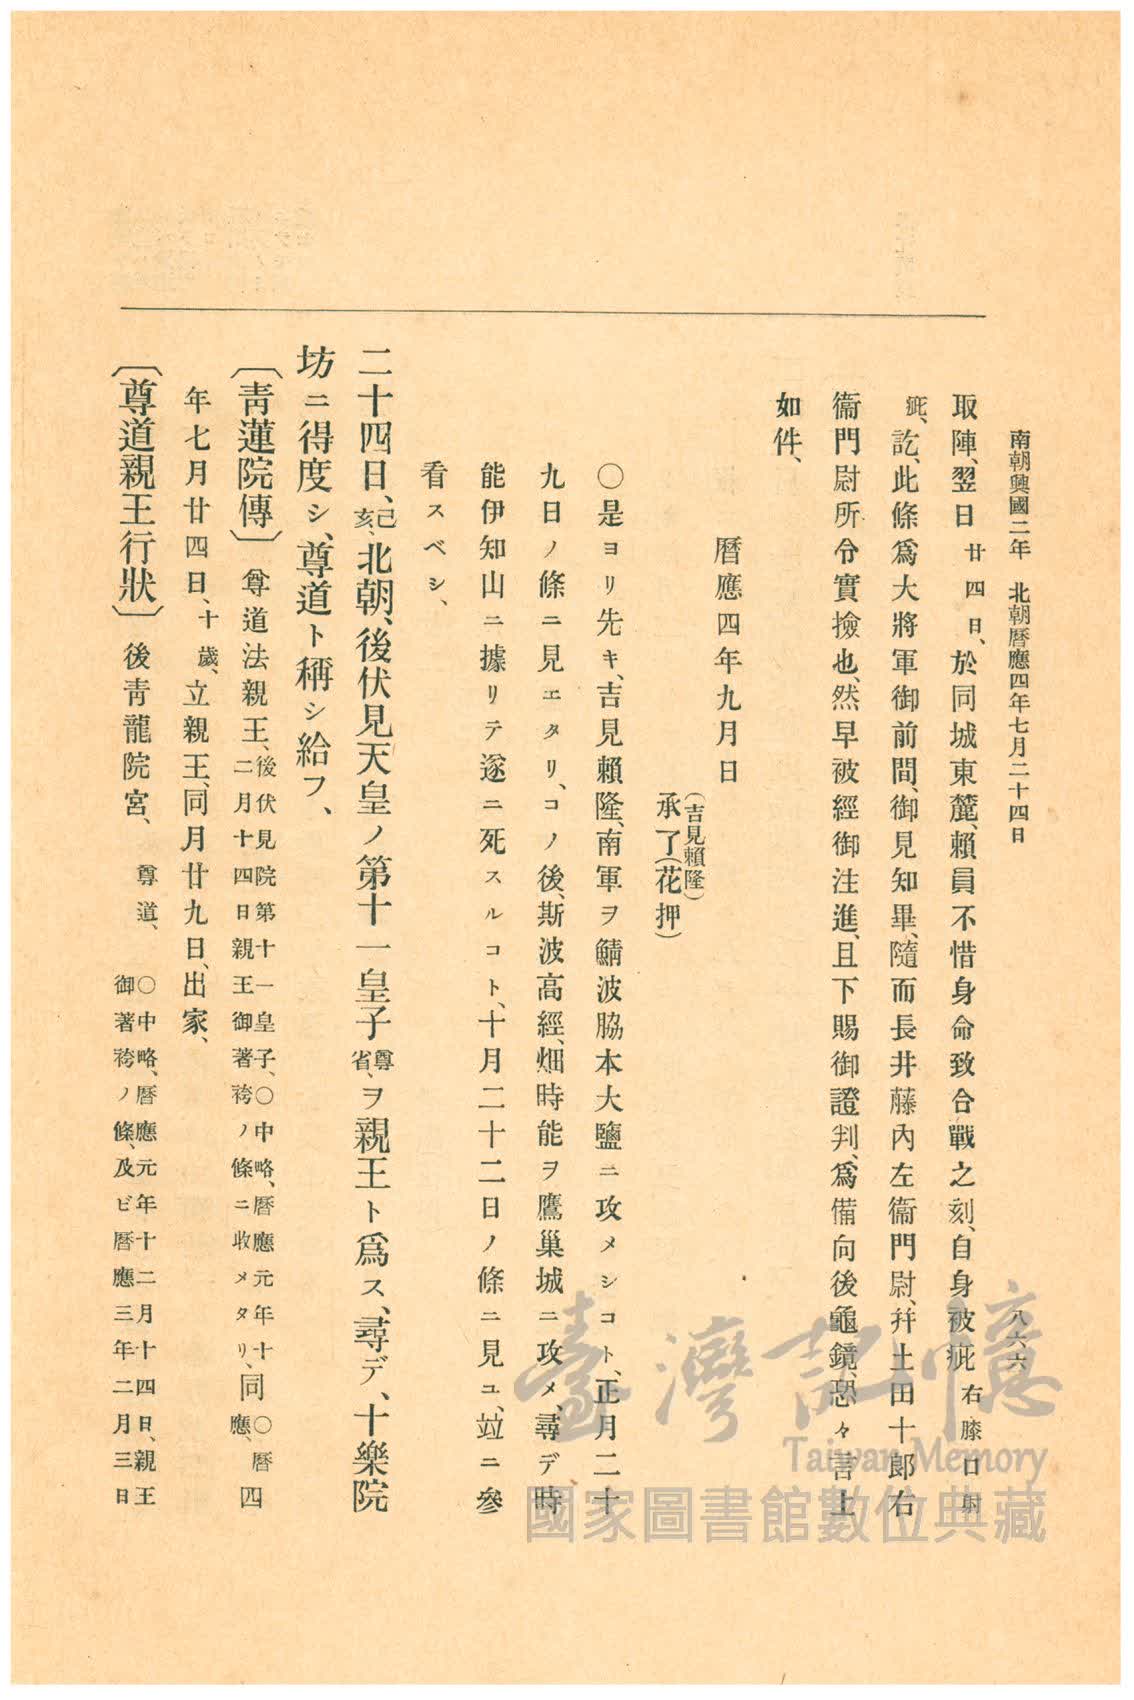 南朝興國二年　北朝曆應四年七月二十四日
八六六
取陣、翌日廿四日、於同城東麓、賴員不惜身命致合戰之刻、自身被疵右膝口射
疵、訖、此條爲大將軍御前間、御見知畢、隨而長井藤內左衞門尉、幷土田十郞右
衞門尉所令實撿也、然早被經御注進、且下賜御證判、爲備向後龜鏡、恐々言上
如件、
曆應四年九月日
(吉見賴隆)
承了(花押)
〇是ヨリ先キ、吉見賴隆、南軍ヲ鯖波脇本大鹽ニ攻メシコト、正月二十
九日ノ條ニ見エタリ、コノ後、斯波高經、畑時能ヲ鷹巢城ニ攻メ、尋デ、時
能伊知山ニ據リテ遂ニ死スルコト、十月二十二日ノ條ニ見ユ、竝ニ參
看スベシ、
二十四日、己亥、北朝、後伏見天皇ノ第十一皇子尊省、ヲ親王ト爲ス、尋デ、十樂院
坊ニ得度シ、尊道ト稱シ給フ、
〔靑蓮院傳〕尊道法親王、後伏見院第十一皇子、〇中略、曆應元年十二月十四日親王御著袴ノ條ニ收メタリ、同〇曆應、四
年七月廿四日、十歲、立親王、同月廿九日、出家、
〔尊道親王行狀〕後靑龍院宮、尊道、〇中略、曆應元年十二月十四日、親王御著袴ノ條、及ビ曆應三年二月三日
臺灣記憶
Taiwan Memory
國家圖書館數位典藏